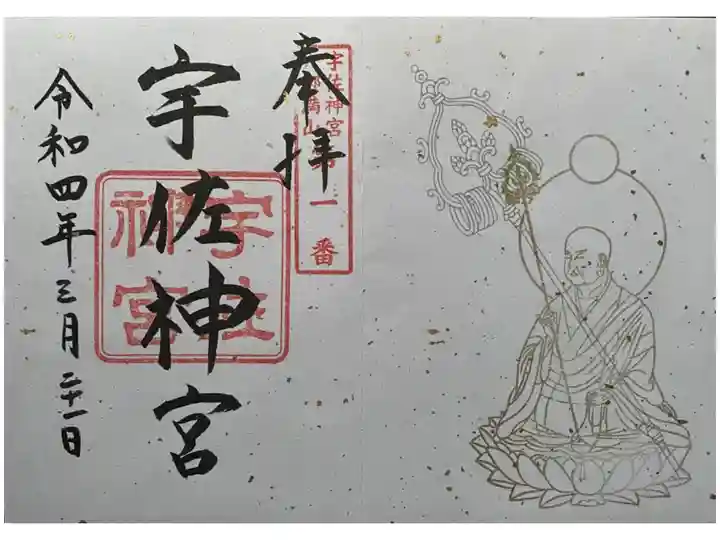 奉拝
宇佐神宮
第一番
宇佐神宮
宇佐神宮
令和四年三月二十一日